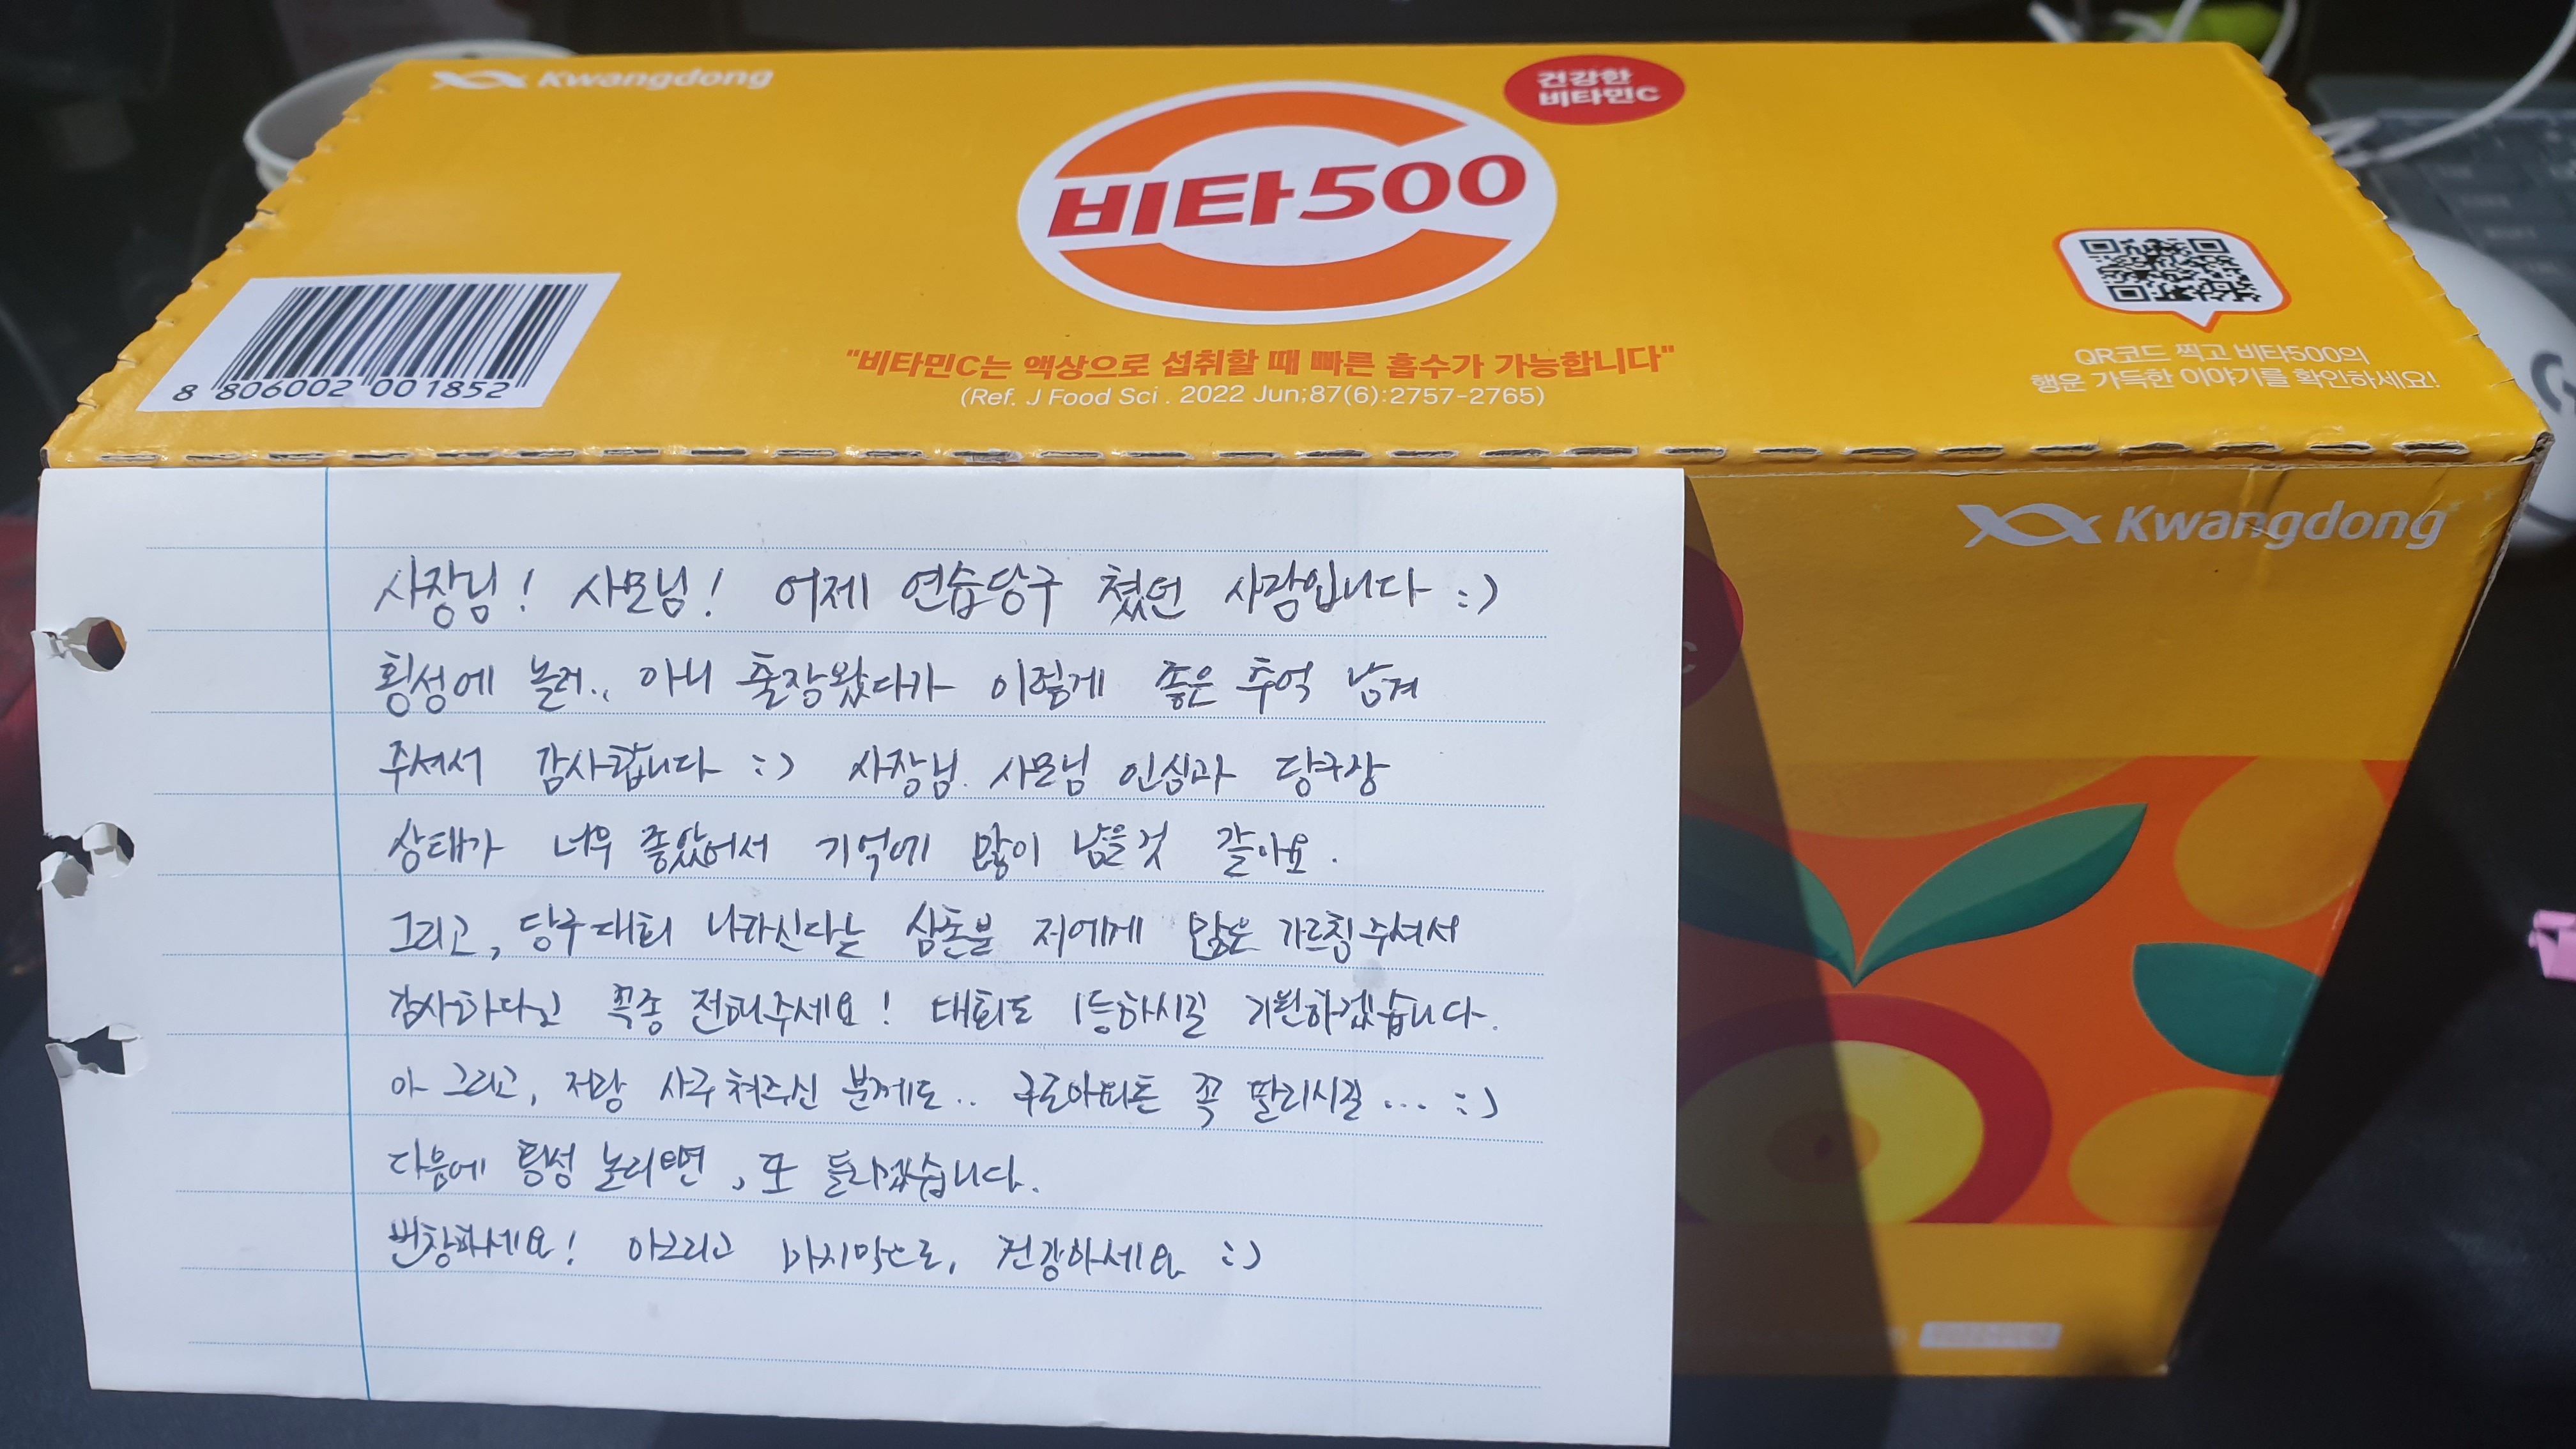 Kwangdong
건강한
비타민C
비타500
8 806002 001852
"비타민C는 액상으로 섭취할 때 빠른 흡수가 가능합니다"
(Ref. J Food Sci . 2022 Jun;87(6):2757-2765)
QR코드 찍고 비타500의
행운 가득한 이야기를 확인하세요!
Kwangdong
C
사장님! 사모님! 어제 연습당구 쳤던 사람입니다 :)
횡성에 놀러.. 아니 출장왔다가 이렇게 좋은 추억 남겨
주셔서 감사합니다 :) 사장님. 사모님 인심과 당구장
상태가 너무 좋았어서 기억에 많이 남을것 같아요.
그리고, 당구대회 나가신다는 삼촌분 저에게 많은 가르침주셔서
감사하다고 꼭좀 전해주세요! 대회도 1등하시길 기원하겠습니다.
아 그리고, 저랑 사구 쳐주신 분께도.. 구로아파트 꼭 팔리시길... :)
다음에 횡성 놀러오면, 또 들리겠습니다.
번창하세요! 아그리고 마지막으로, 건강하세요 :)